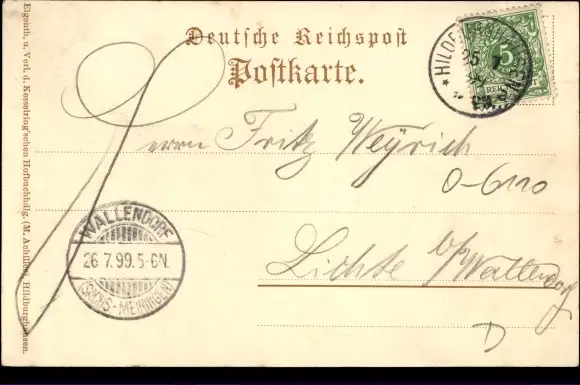 Deutsche Reichspost
Postkarte.
HILDBURGHAUSEN
25 7
5
REICH
Herrn Fritz Weyrich
0-6110
Lichte b/Wallendorf
D
WALLENDORF
26.7.99.5-6N.
(SACHS-MEININGEN)
Eigenth. u. Verl. d. Kesselring'schen Hofbuchhdlg. (M. Achilles) Hildburghausen.